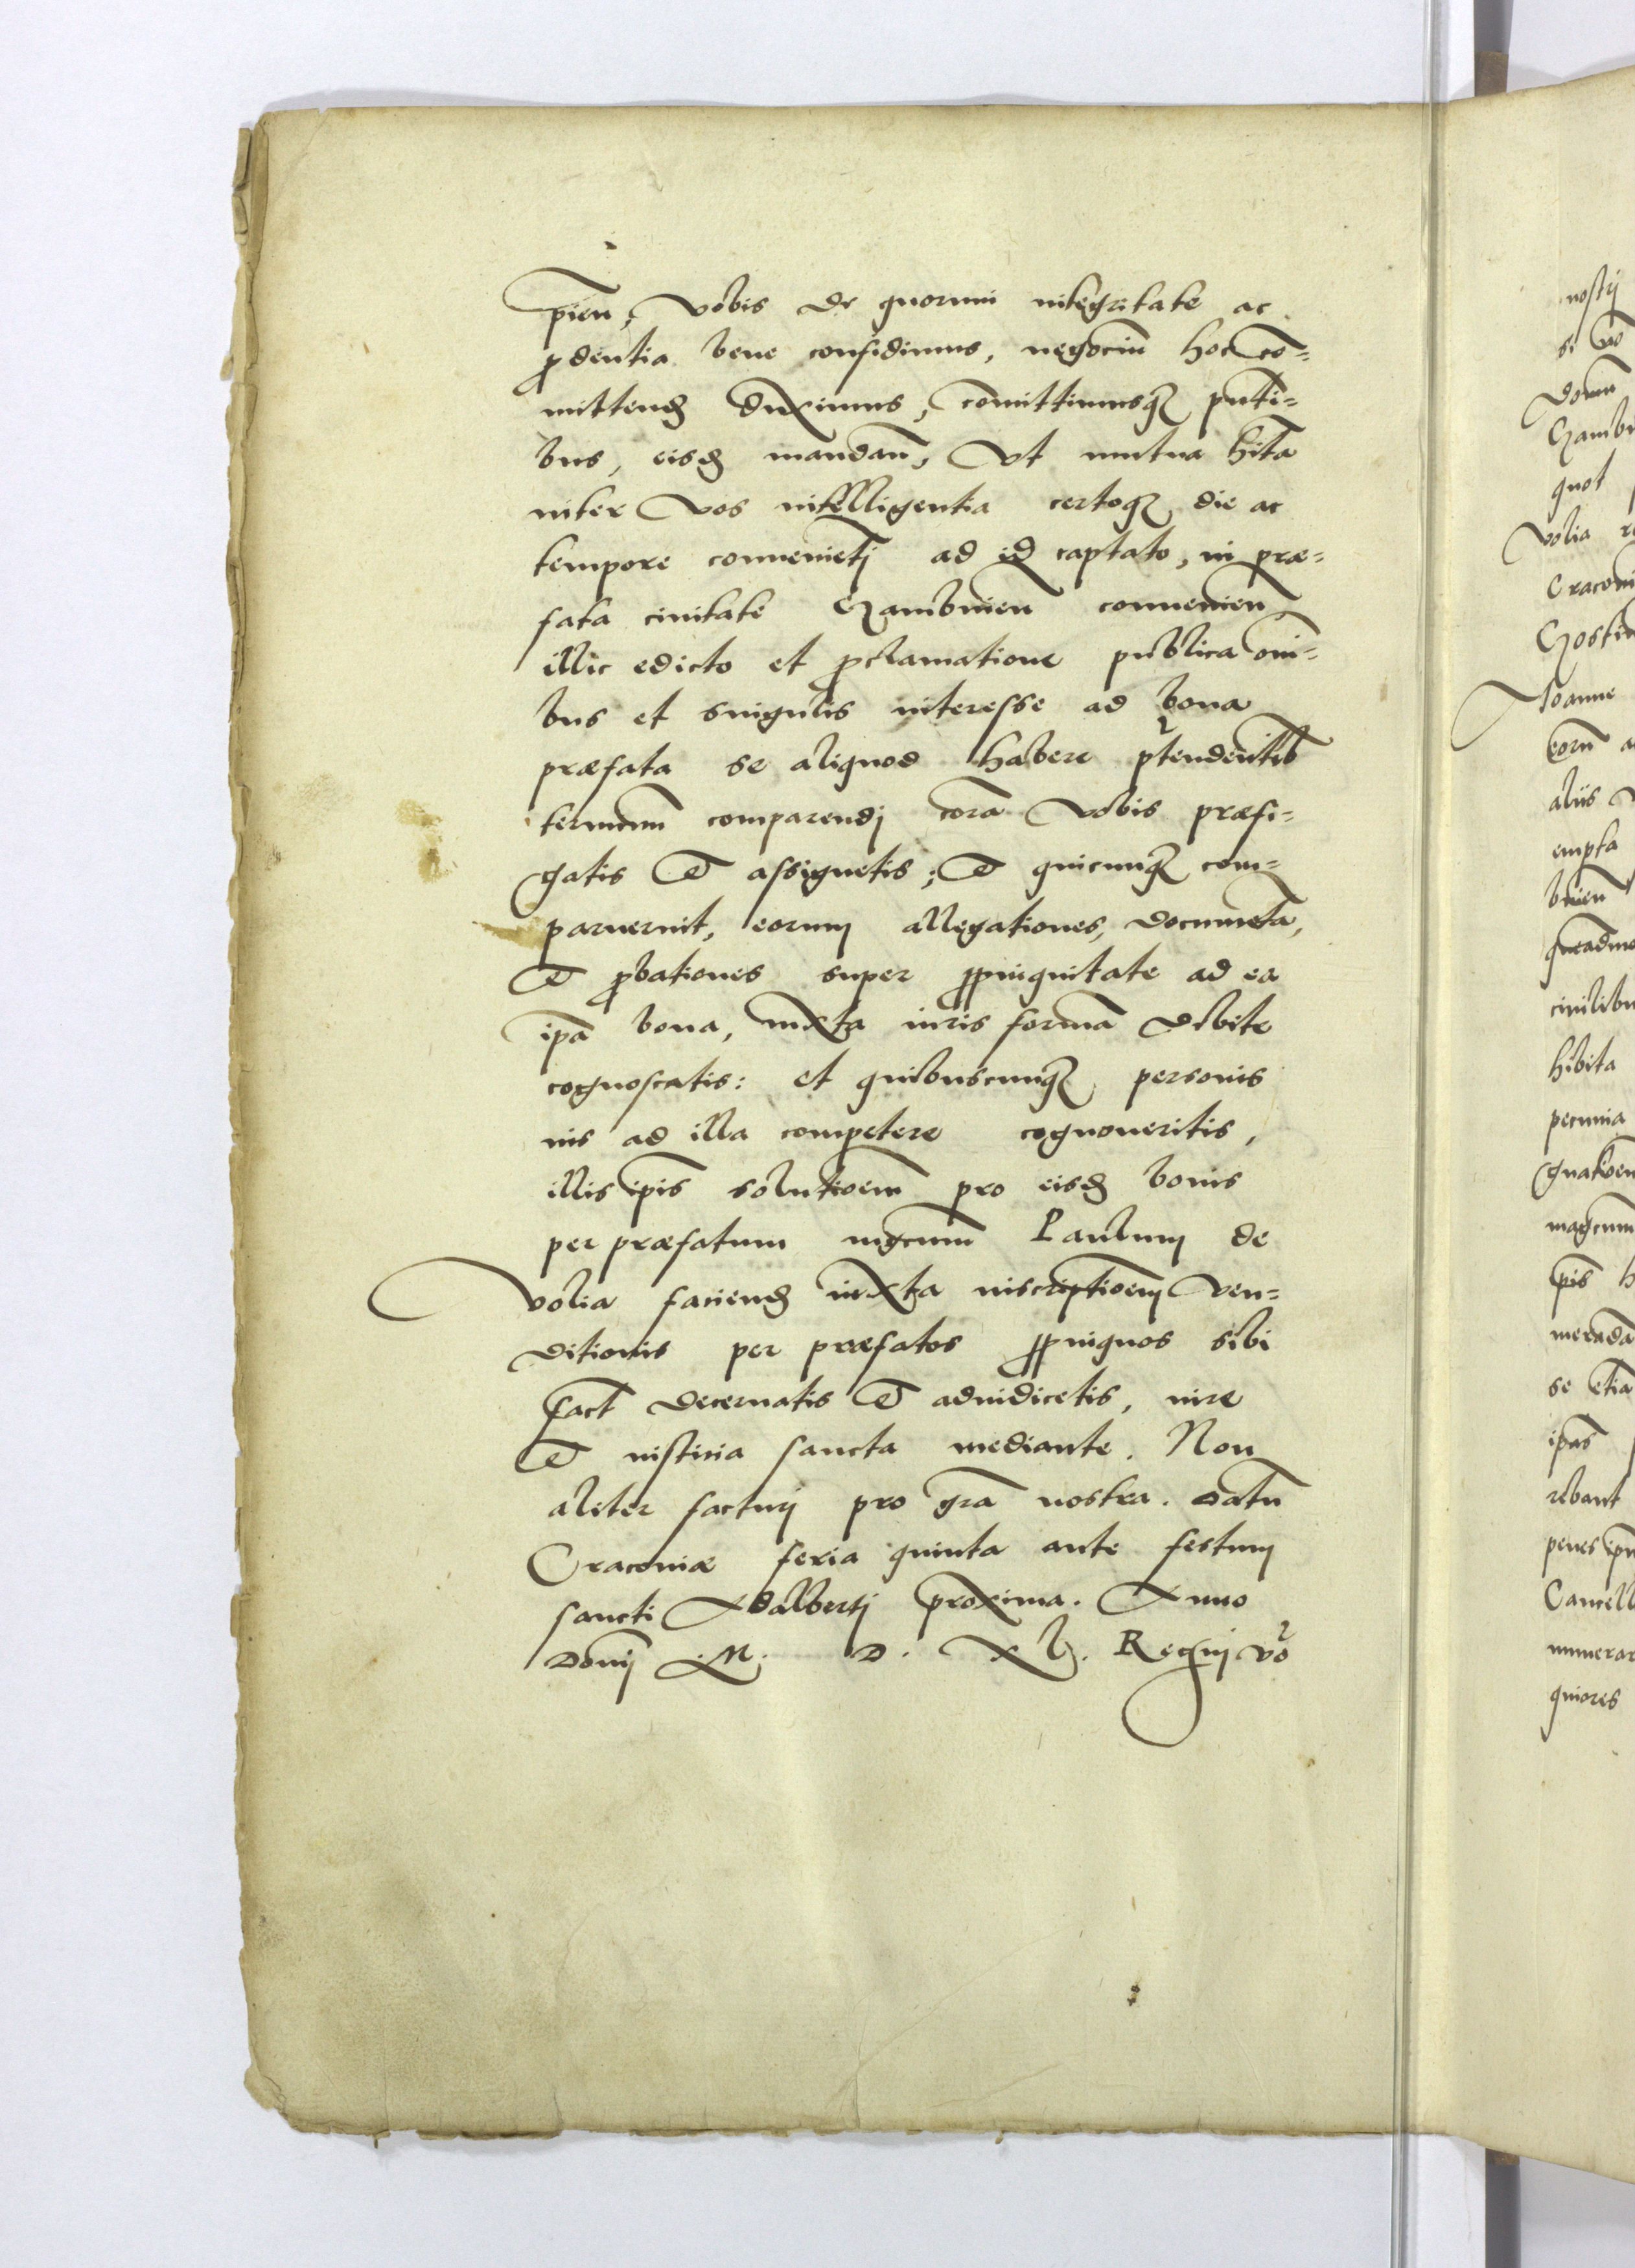 pien, Vobis de quorum integritate ac
prdentia bene confidimus, negociu hoc co=
mittend duximus, comittimusq pnti=
bus, eisd mandan, Vt mutua hita
inter Vos intelligentia certoq die ac
tempore convenieti ad id captato, in præ=
fata civitate Czambinien convenien
illic edicto et pclamatione publica omi=
bus et singulis interesse ad bona
præfata se aliquod habere ptendentib
terminum comparendj cora Vobis præfi=
gatis et assignetis; et quicunq com=
paruerint, eorum allegationes, documeta,
et pbationes super ppinquitate ad ea
ipa bona, iuxta iuris forma debite
cognoscatis: et quibuscunq personis
ius ad illa competere cognoveritis,
illis ipis solutioem pro eisd bonis
per præfatum mgcum Paulum de
Volia faciend iuxta inscriptioem Ven=
ditionis per præfatos ppinquos sibi
fact decernatis et adiudicetis, iure
et iusticia sancta mediante. Non
aliter facturi pro gra nostra. Datu
Cracoviæ feria quinta ante festum
sancti Adalbertj proxima. Anno
Domj M. D. XL. Regni vo
nostrj
Volia
Cracovi
Joanne
eoru a
aliis
empta
civilibu
hibita
pecunia
magcum
ipis h
se etia
ipas
penes ipu
Cancell
numerar